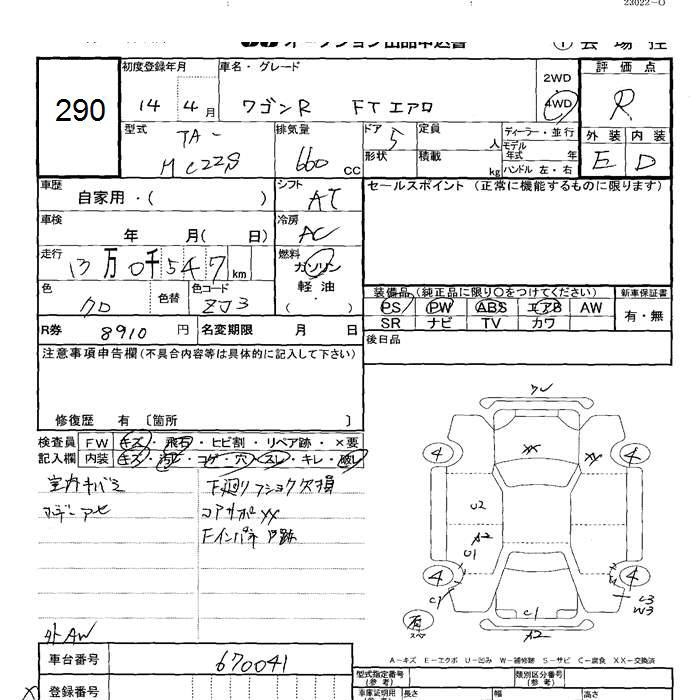 23022-0
オークション出品申込書
① 会場控
290
初度登録年月
14年 4月
車名・グレード
ワゴンR FTエアロ
2WD
4WD
評価点
R
型式
TA-
MC22S
排気量
660 CC
ドア 5
定員 人
形状
積載 kg
ディーラー・並行
モデル年式 年
ハンドル 左・右
外装 内装
E D
車歴
自家用・( )
シフト
AT
セールスポイント (正常に機能するものに限ります)
車検
年 月( 日)
冷房
AC
走行
13万0千547km
燃料
ガソリン
軽油
( )
色
クロ
色替
色コード
ZJ3
装備品 (純正品に限り○をつけてください)
新車保証書
PS PW ABS エアB AW
SR ナビ TV カワ
有・無
R券 8910円
名変期限 月 日
後日品
注意事項申告欄 (不具合内容等は具体的に記入して下さい)
修復歴 有 〔箇所 〕
検査員 FW キズ・飛石・ヒビ割・リペア跡・×要
記入欄 内装 キズ・汚レ・コゲ・穴・スレ・キレ・破レ
室内キバミ
ボディアセ
下廻りフショク欠損
コアサポXX
Fインパネ 跡
外AW
ワレ
XX
XY
4
4
U2
A2
U1
4
4
C1
C1
C3
W3
有
スペア
A2
A-キズ E-エクボ U-凹み W-補修跡 S-サビ C-腐食 XX-交換済
車台番号
670041
登録番号
型式指定番号
(参考)
類別区分番号
(参考)
車庫証明用
(参考)
長さ 幅 高さ